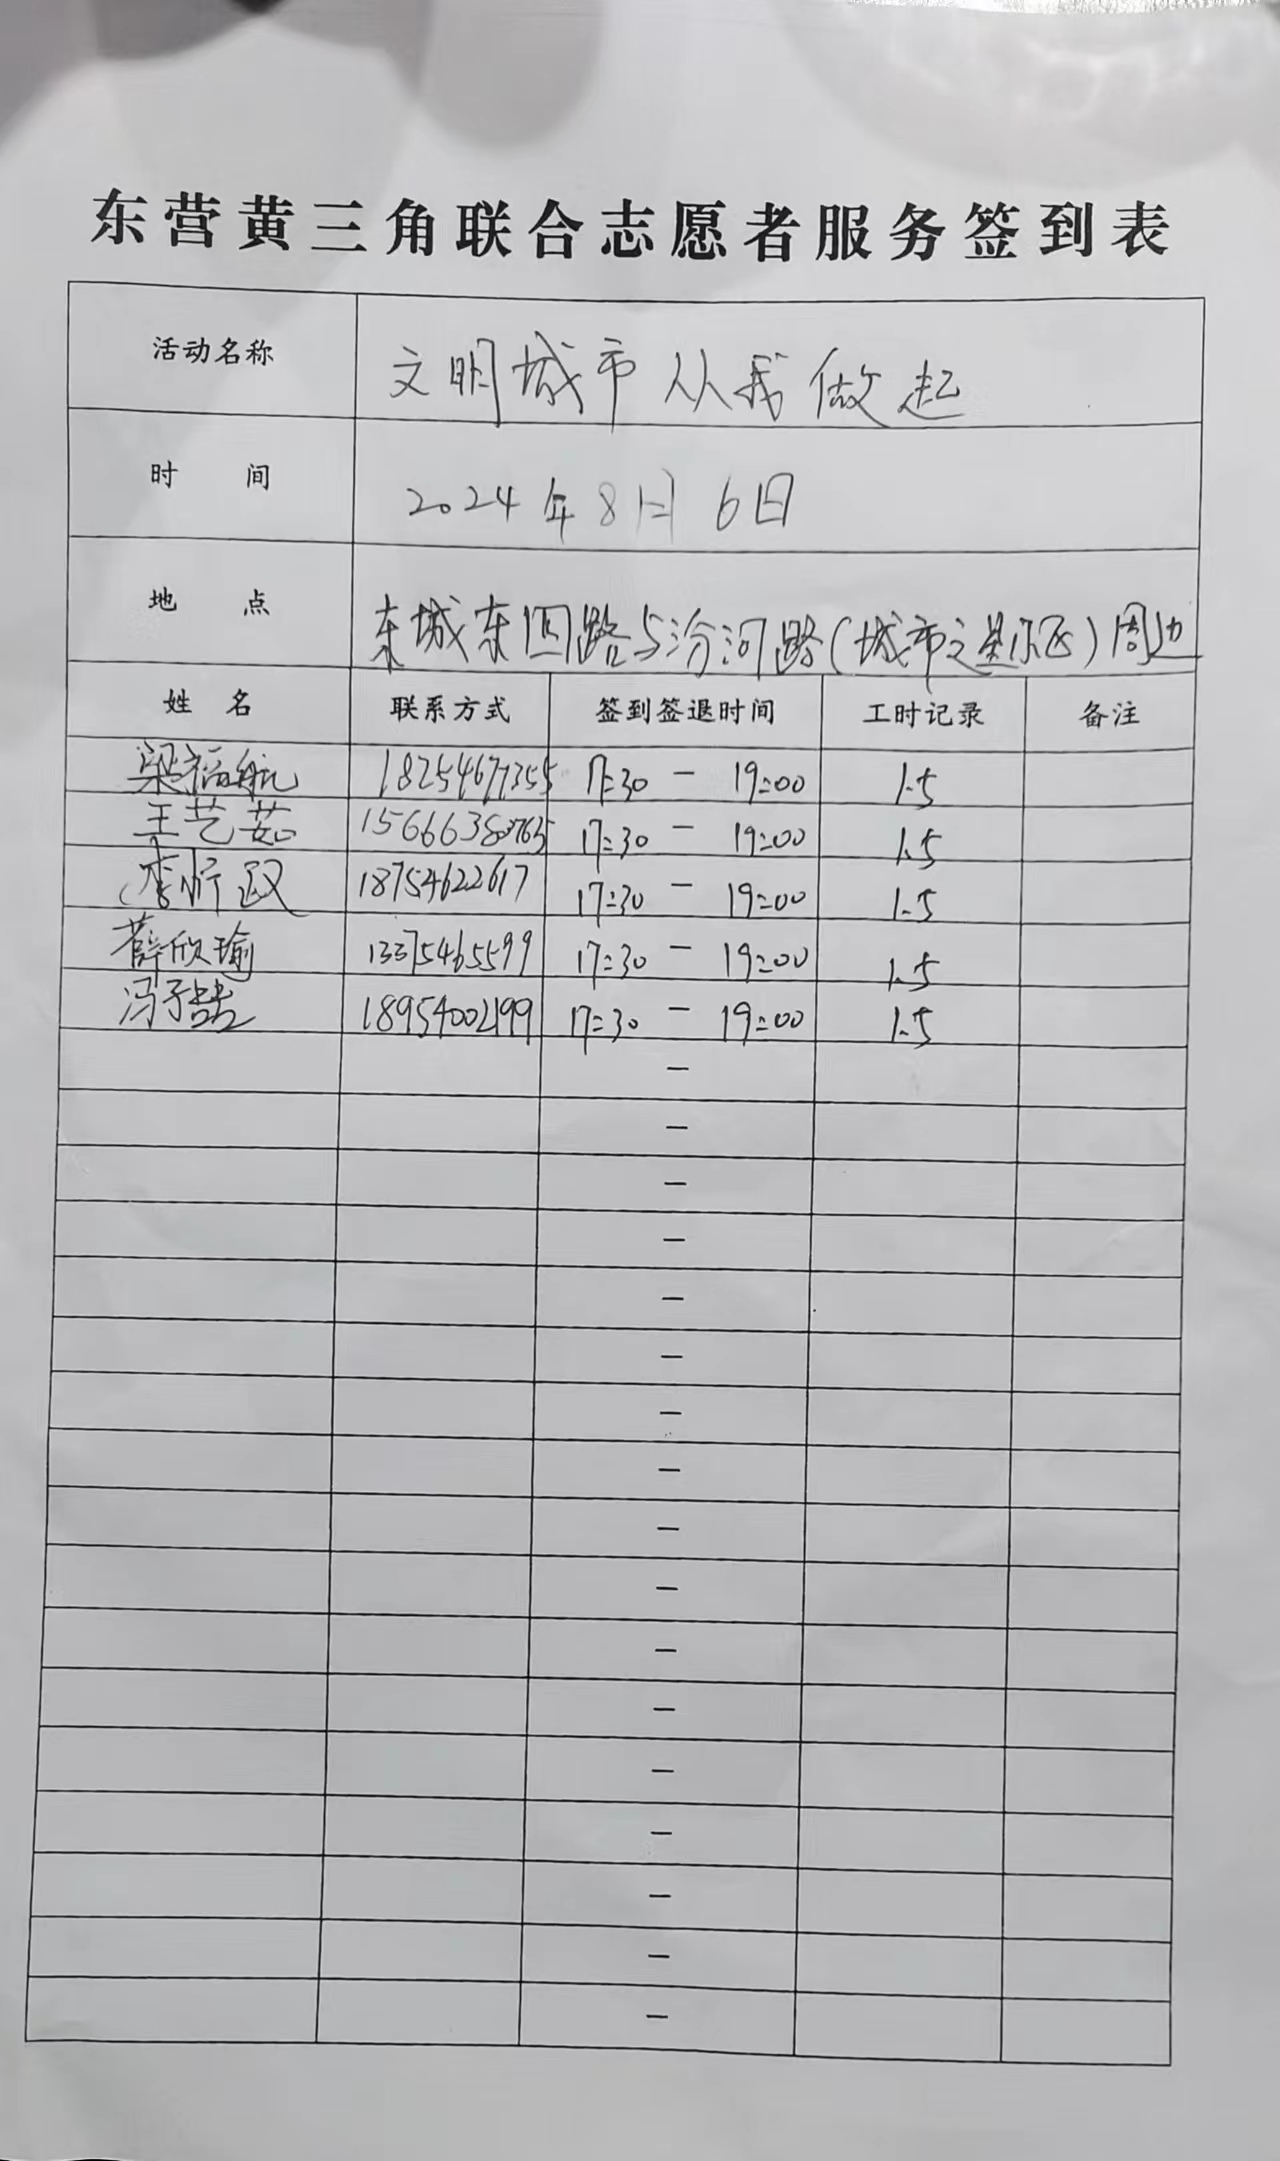 东营黄三角联合志愿者服务签到表
活动名称 文明城市从我做起
时 间 2024年8月6日
地 点 东城东四路与汾河路(城市之星小区)周边
姓 名 联系方式 签到签退时间 工时记录 备注
梁福航 17:30 — 19:00 1.5
王艺茹 17:30 — 19:00 1.5
李 18754622617 17:30 — 19:00 1.5
薛欣瑜 13375465599 17:30 — 19:00 1.5
冯子喆 18954002199 17:30 — 19:00 1.5
—
—
—
—
—
—
—
—
—
—
—
—
—
—
—
—
—